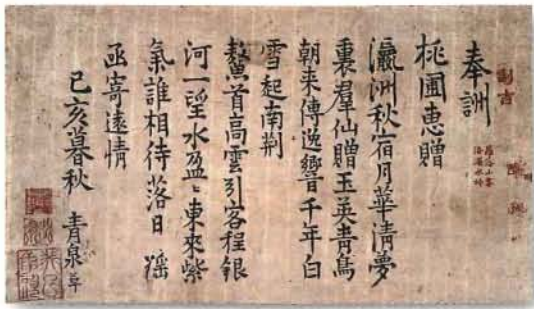 奉詶
桃圃惠贈
瀛洲秋宿月華淸夢
裏羣仙贈玉英靑鳥
朝来傳逸響千年白
雪起南荆
鰲首高雲引客程銀
河一望水盈〻東來紫
氣誰相待落日瑶
凾寄遠情
己亥暮秋 靑泉草